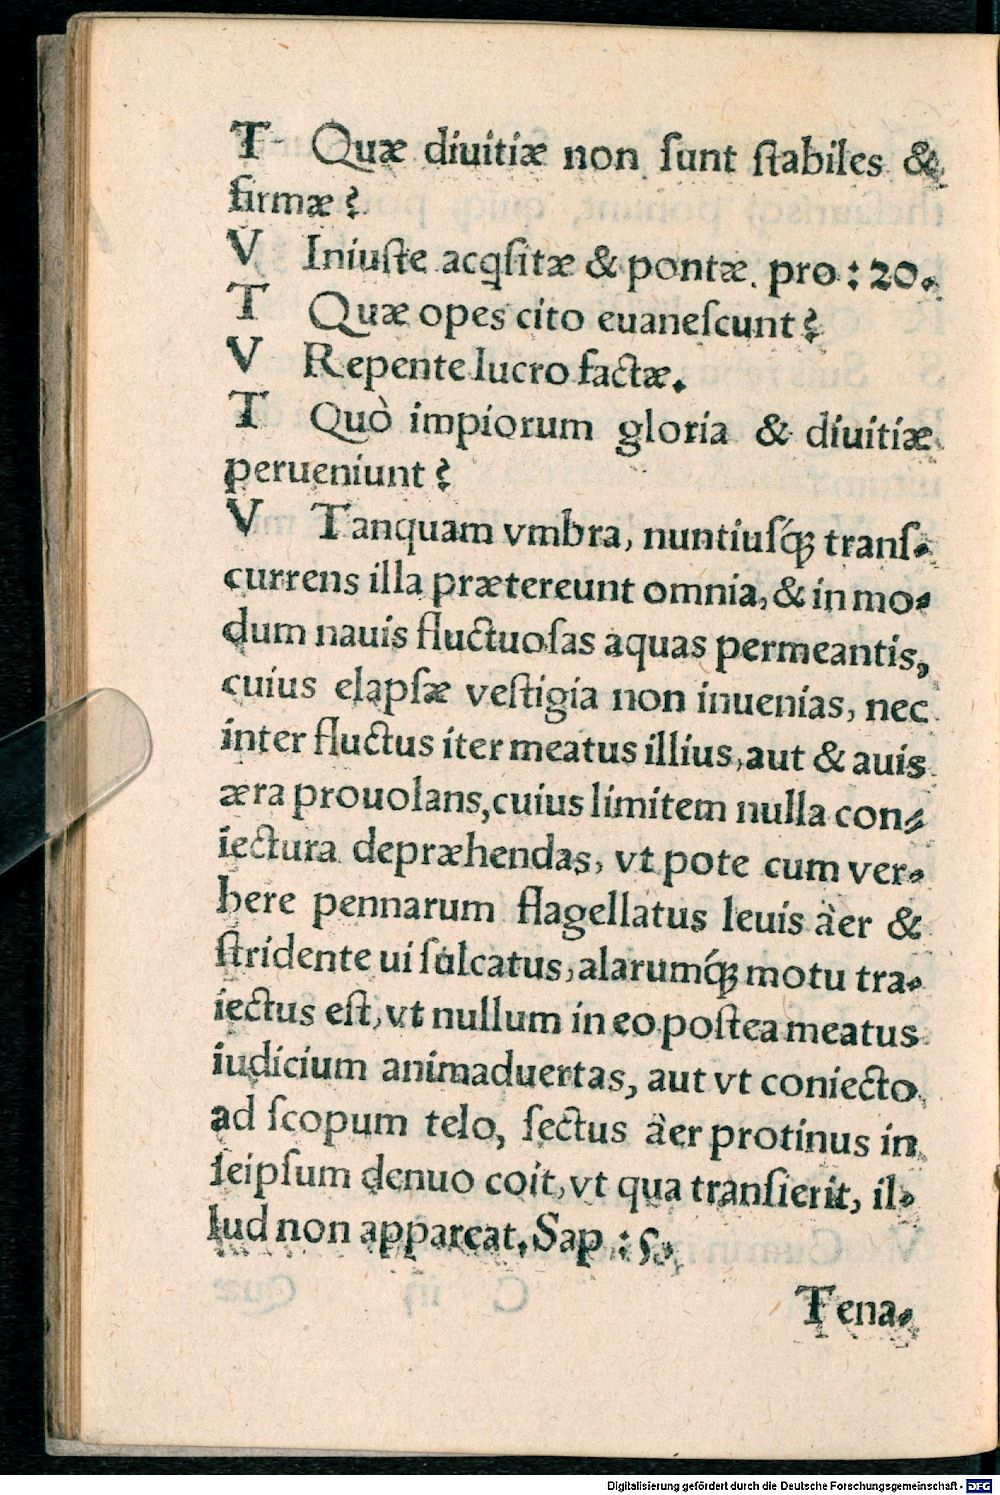 T Quæ diuitiæ non ſunt ſtabiles &
firmæ?
V Iniuſte acqſitæ & pontæ. pro: 20.
T Quæ opes cito euaneſcunt?
V Repente lucro factæ.
T Quò impiorum gloria & diuitiæ
perueniunt?
V Tanquam vmbra, nuntiuſq́ꝫ tranſ⸗
currens illa prætereunt omnia, & in mo⸗
dum nauis fluctuoſas aquas permeantis,
cuius elapſæ veſtigia non inuenias, nec
inter fluctus iter meatus illius, aut & auis
æra prouolans, cuius limitem nulla con⸗
iectura depræhendas, vt pote cum ver⸗
bere pennarum flagellatus leuis àer &
ſtridente ui ſulcatus, alarumq́ꝫ motu tra⸗
iectus eſt, vt nullum in eo poſtea meatus
iudicium animaduertas, aut vt coniecto
ad ſcopum telo, ſectus àer protinus in
ſeipſum denuo coit, vt qua tranſierit, il⸗
lud non appareat. Sap: 5.
Tena⸗
Digitalisierung gefördert durch die Deutsche Forschungsgemeinschaft - DFG